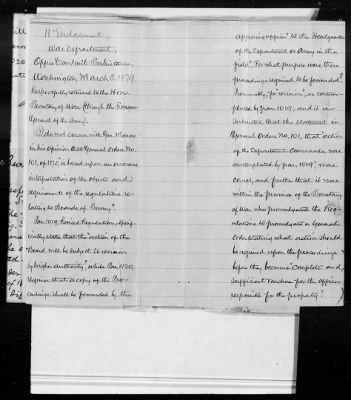 11th Endorsement.
War Department,
March 5, 1879.
Respectfully returned to the Hon.
Secretary of War through the
General of the Army.
I do not concur with Gen.
in his opinion that General Order No.
101, of is based upon an erroneous
interpretation of the objects and
requirements of the regulations re-
lating to Boards of Survey.
Par. 1019, Revised Regulations, specif-
ically states that "the action of the
Board will be subject to revision
by higher authority," while Par. 1020,
requires that a copy of the "Pro-
ceedings shall be forwarded by the
approving officer" to the Headquarters
of the Department or Army in the
field." For what purpose were these
proceedings required to be forwarded?
Presumably, for "revision", as contem-
plated by par. 1019, and it is
submitted that the statement in
General Order No. 101, that "action
of the Department Commander was
contemplated by par. 1019," was
correct, and further that it was
within the province of the Secretary
of War who promulgated the Reg-
ulations to promulgate a General
Order stating what action should
be required upon the proceedings
before they become "complete and
sufficient voucher for the officer
responsible for the property".